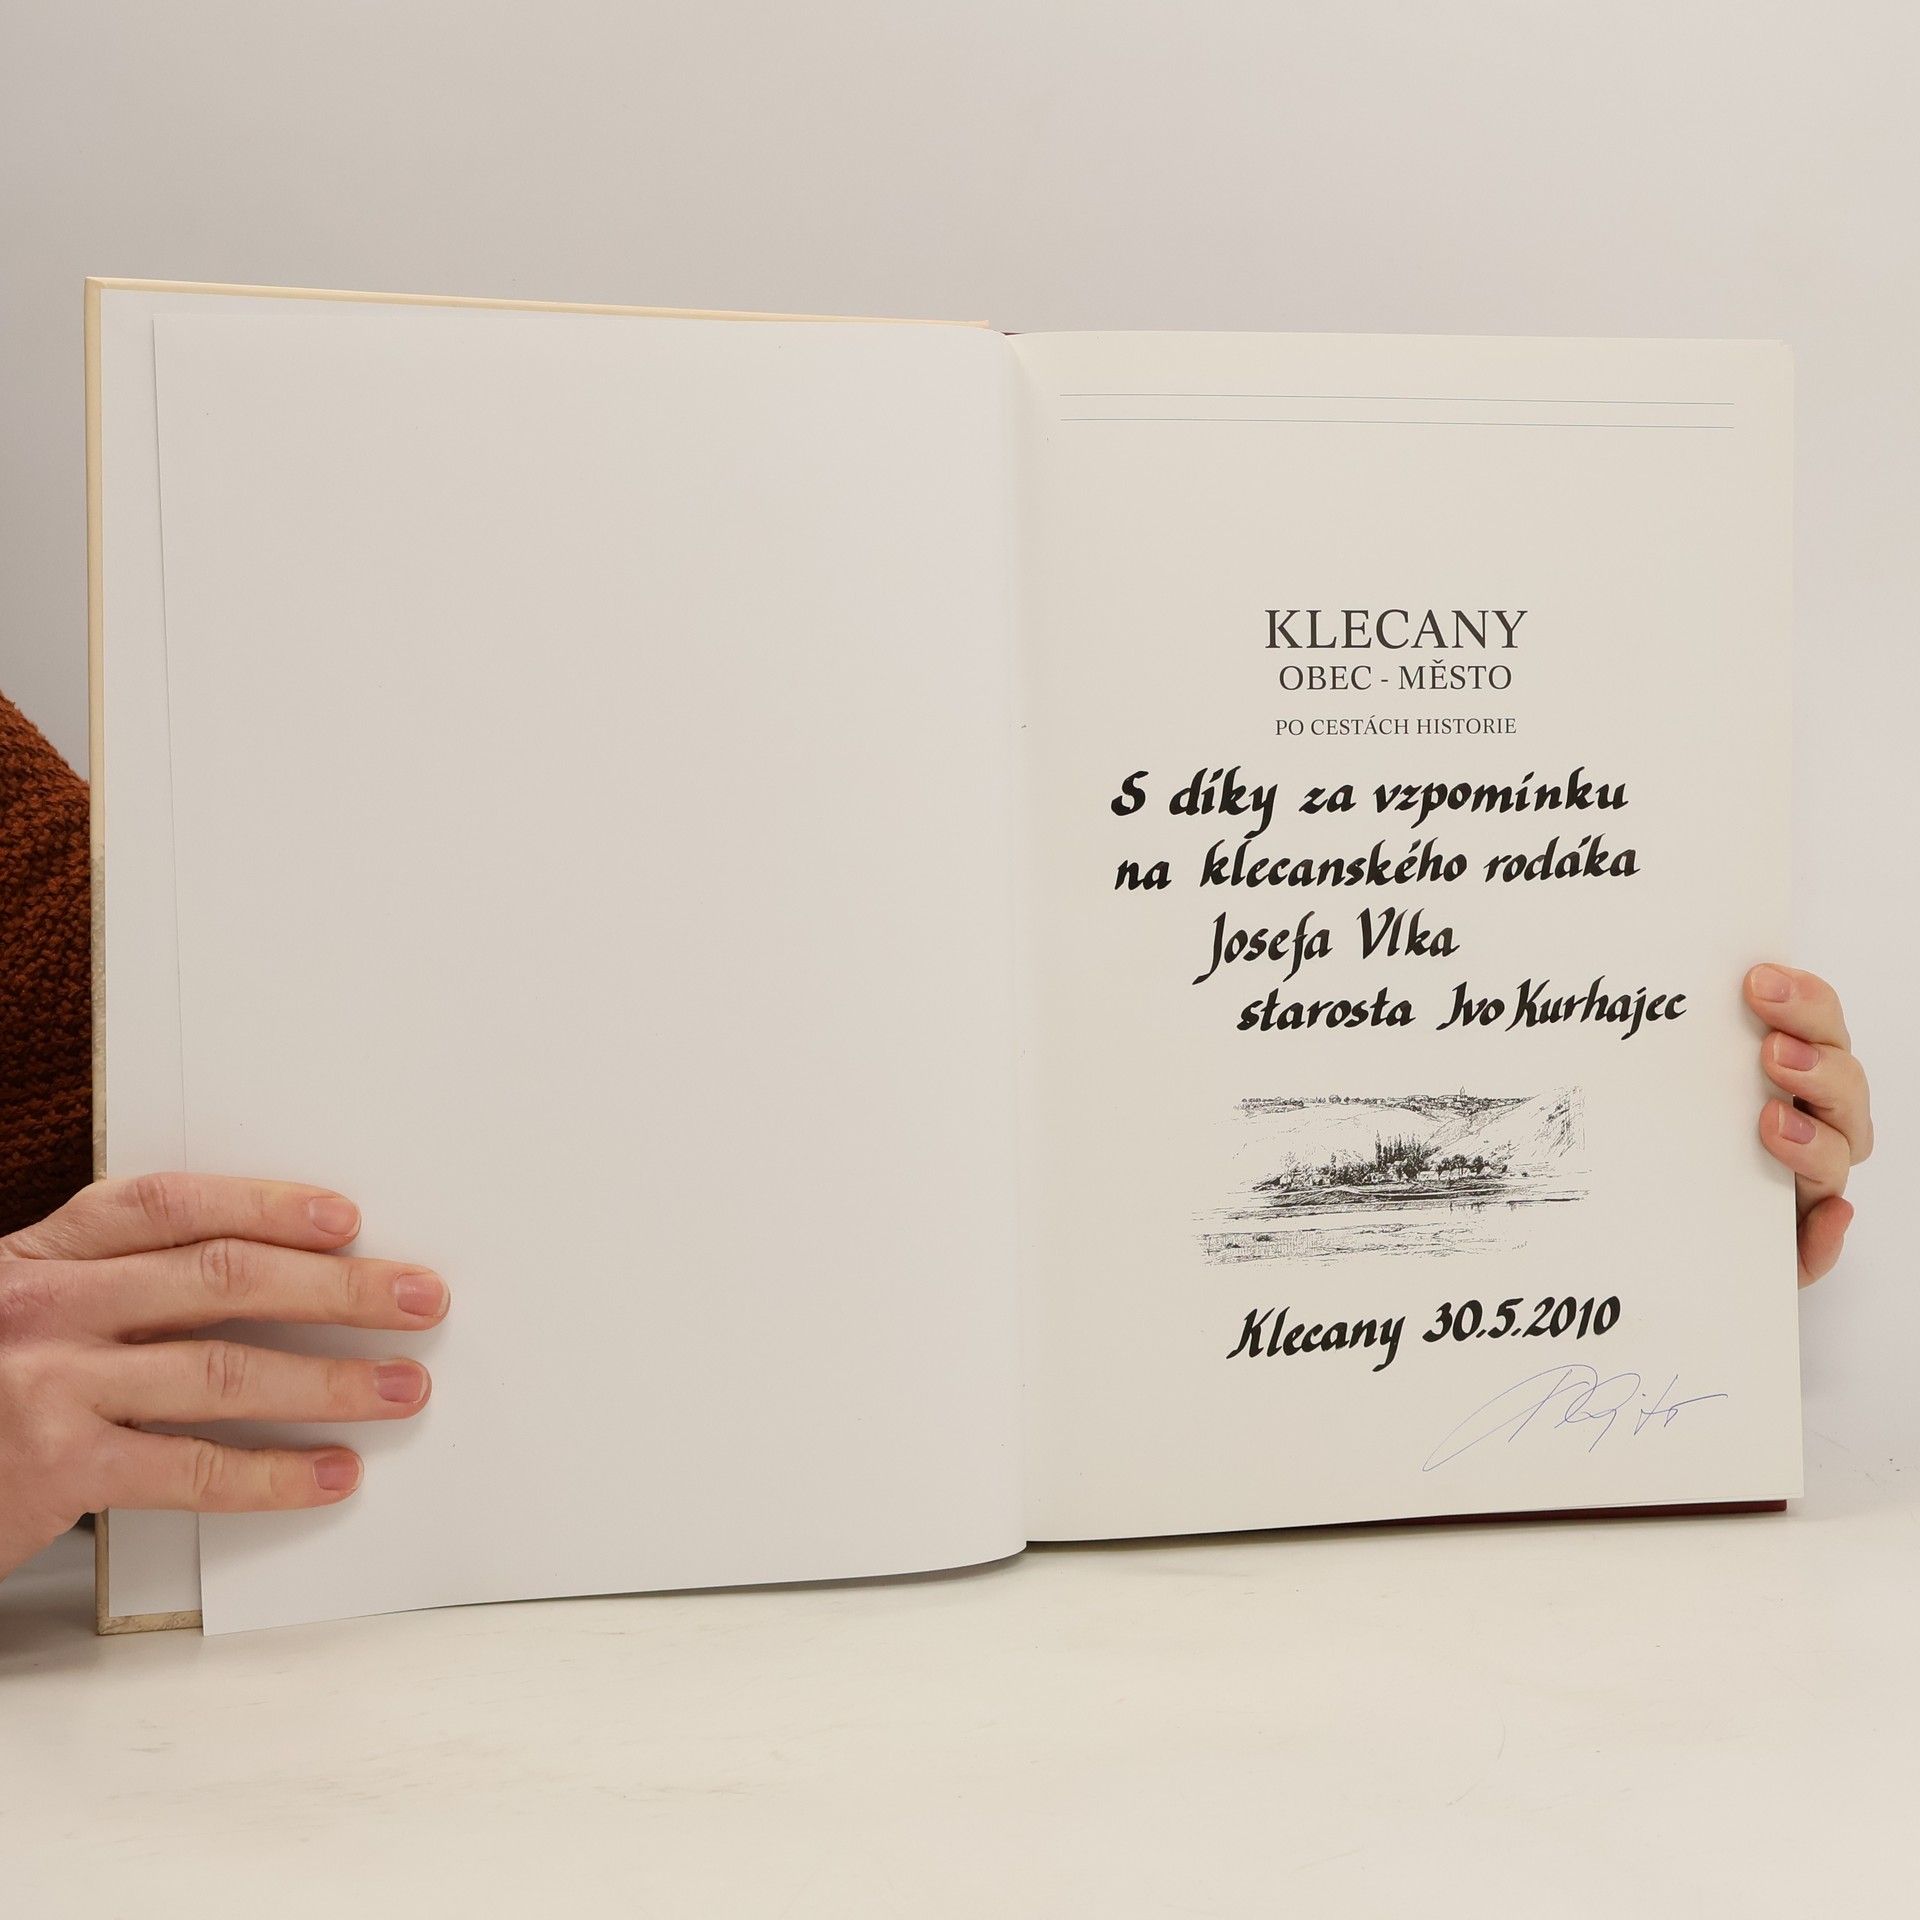 KLECANY
OBEC - MĚSTO
PO CESTÁCH HISTORIE
S díky za vzpomínku
na klecanského rodáka
Josefa Vlka
starosta Ivo Kurhajec
Klecany 30.5.2010